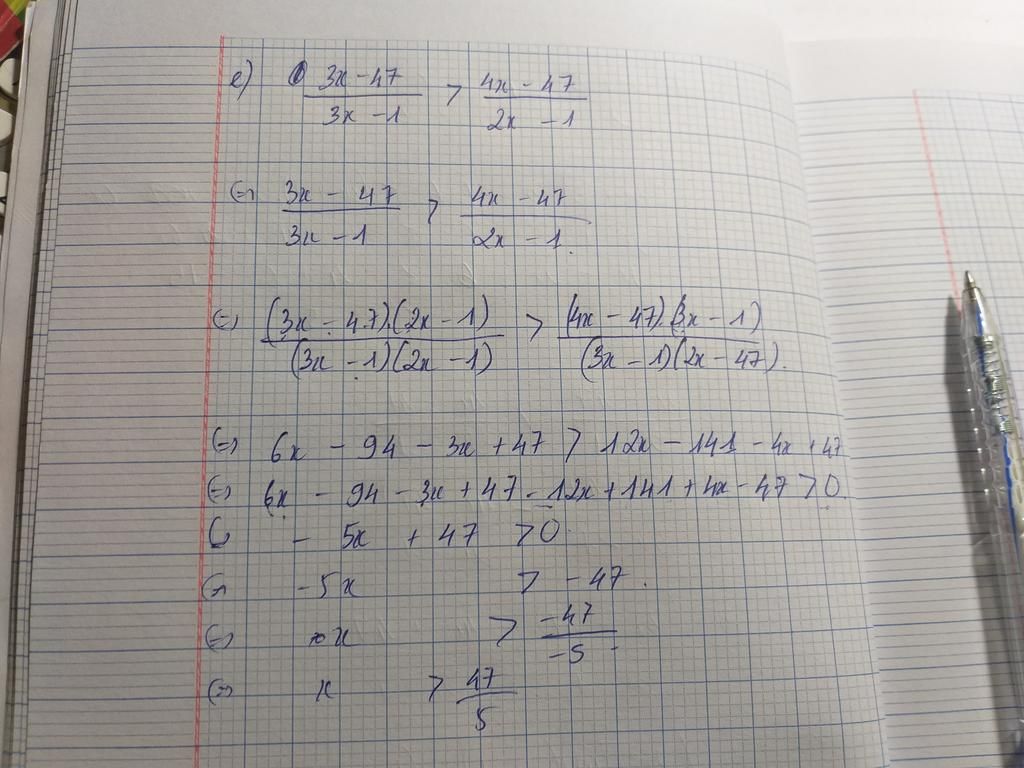 e) 3x - 47 / 3x - 1 > 4x - 47 / 2x - 1
(=) 3x - 47 / 3x - 1 > 4x - 47 / 2x - 1.
(=) (3x - 47).(2x - 1) / (3x - 1)(2x - 1) > (4x - 47).(3x - 1) / (3x - 1)(2x - 47).
(=) 6x - 94 - 3x + 47 > 12x - 141 - 4x + 47
(=) 6x - 94 - 3x + 47 - 12x + 141 + 4x - 47 > 0.
(= - 5x + 47 > 0.
(= - 5x > - 47.
(=) x > -47 / -5
(=) x > 47 / 5